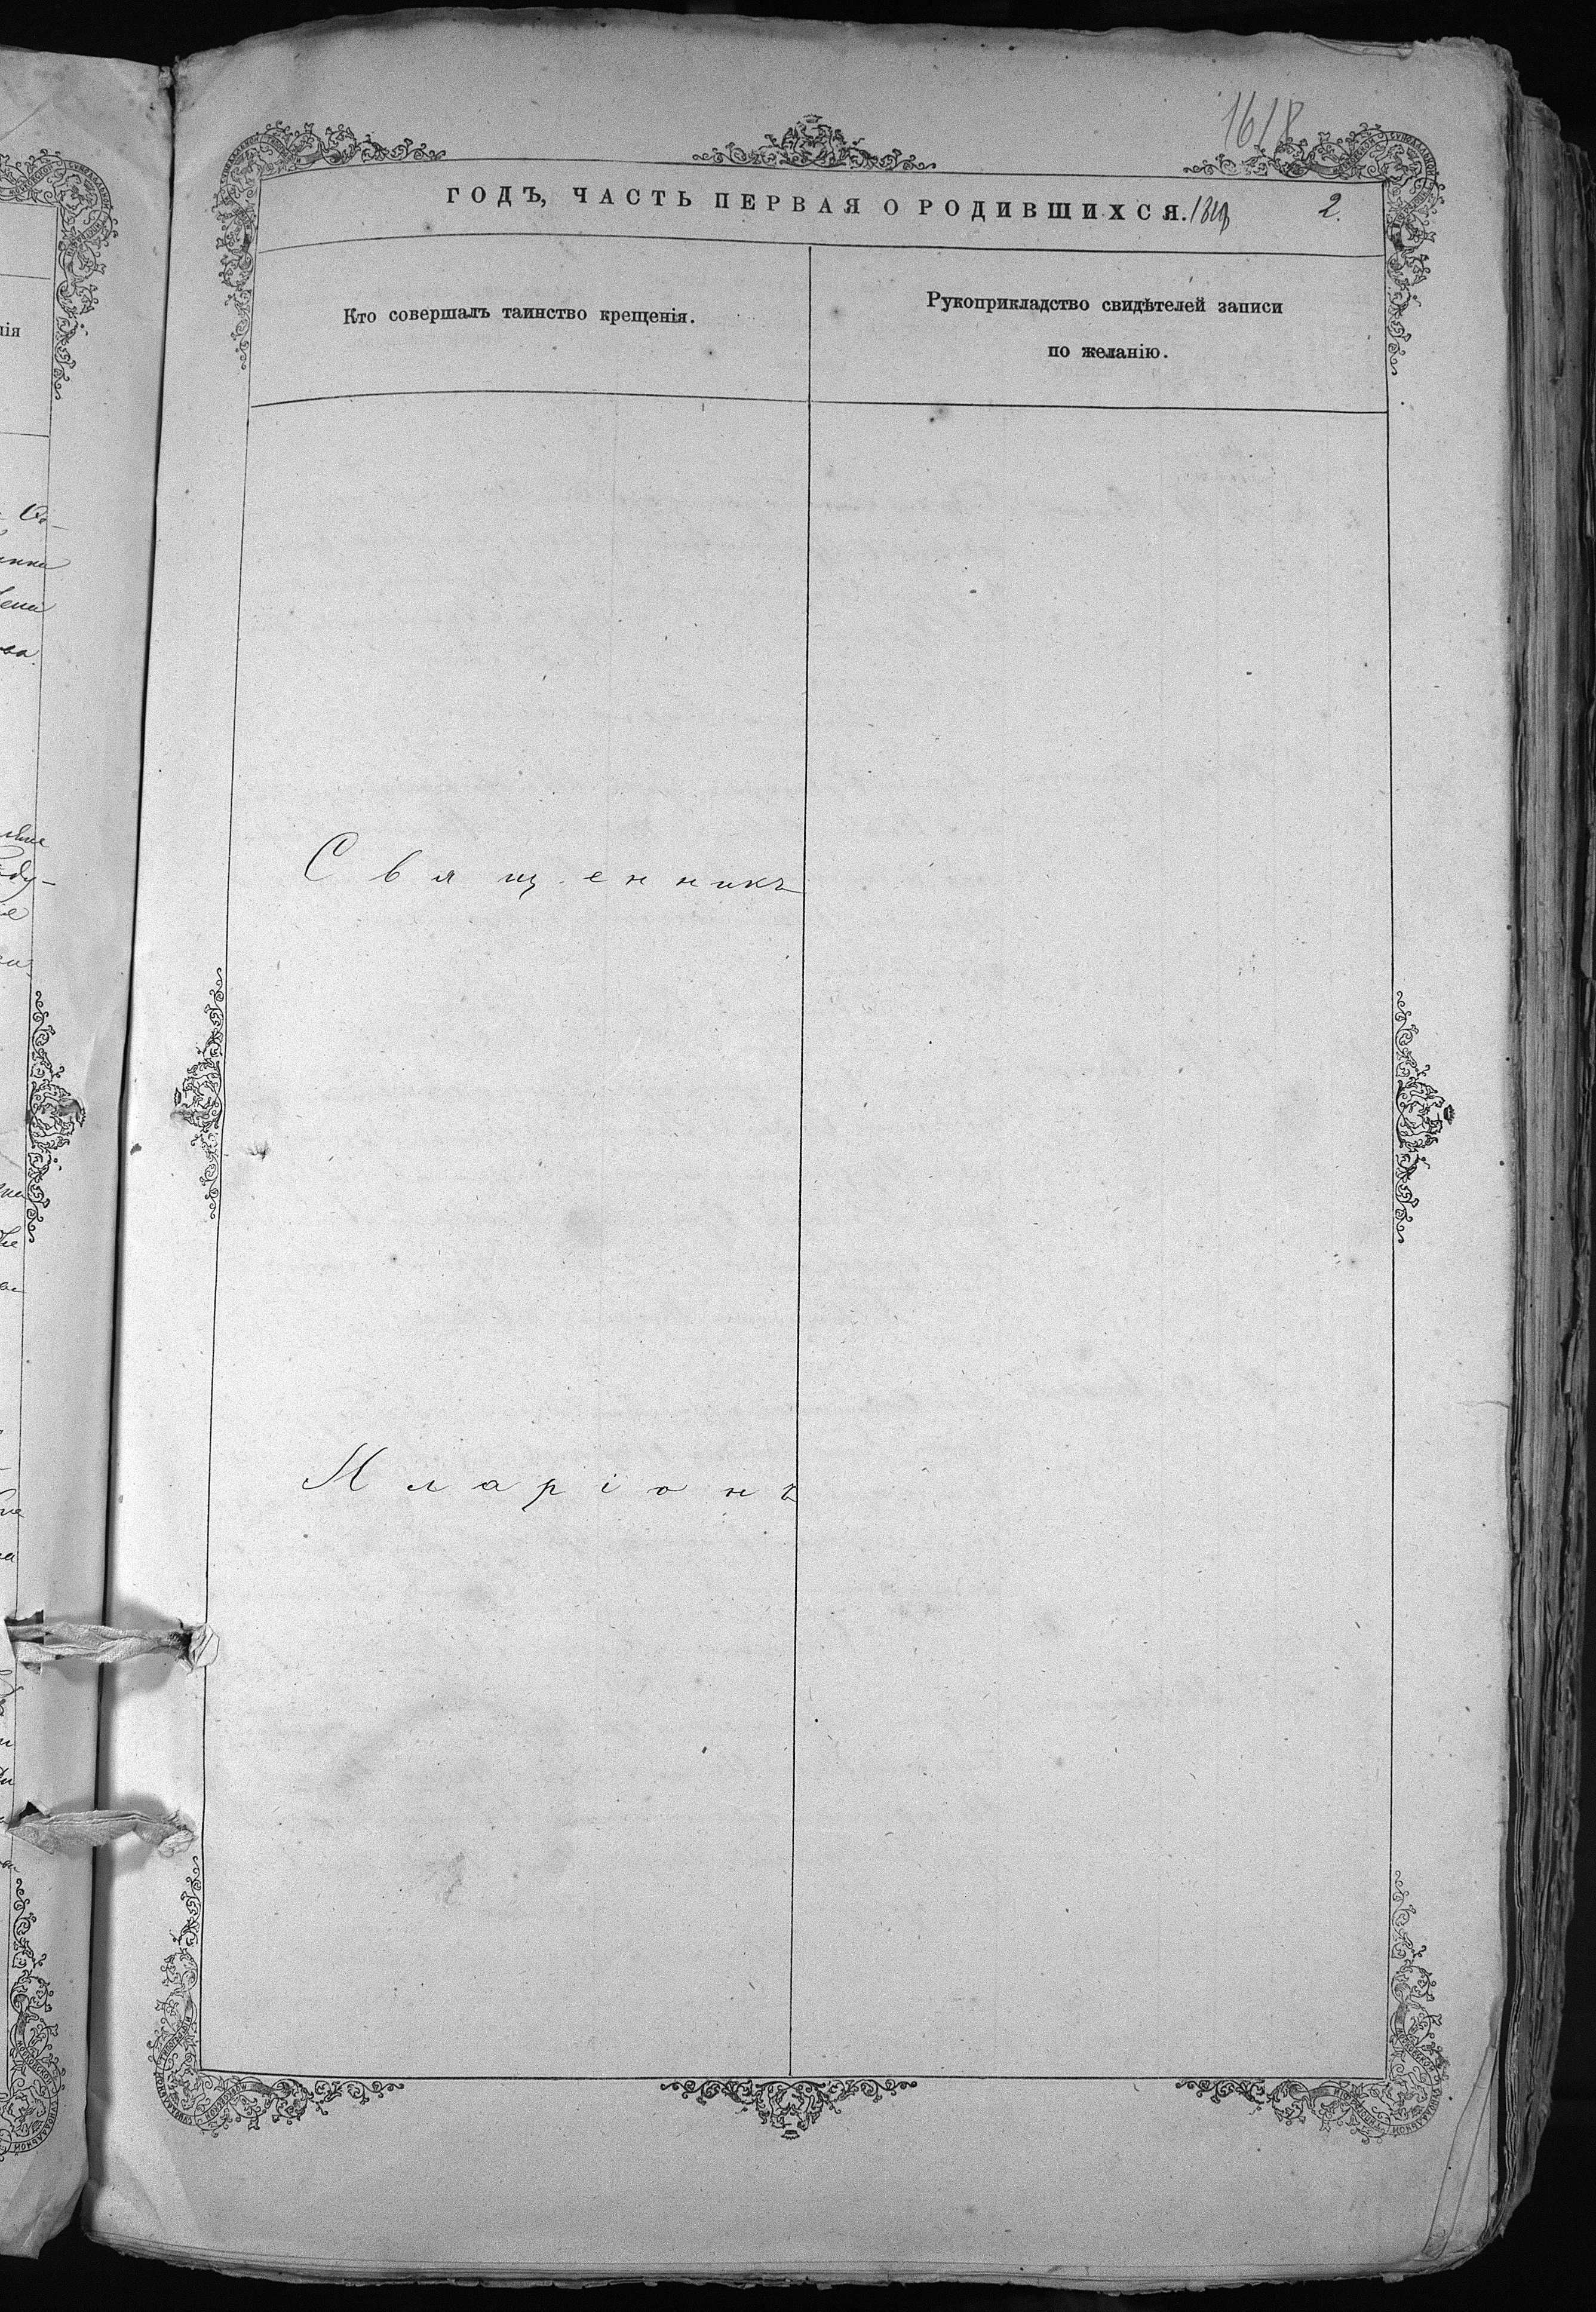 1618
ГОДЪ, ЧАСТЬ ПЕРВАЯ О РОДИВШИХСЯ.
2.
Кто совершалъ таинство крещенія.
Рукоприкладство свидѣтелей записи
по желанію.
Священникъ
Иларіонъ